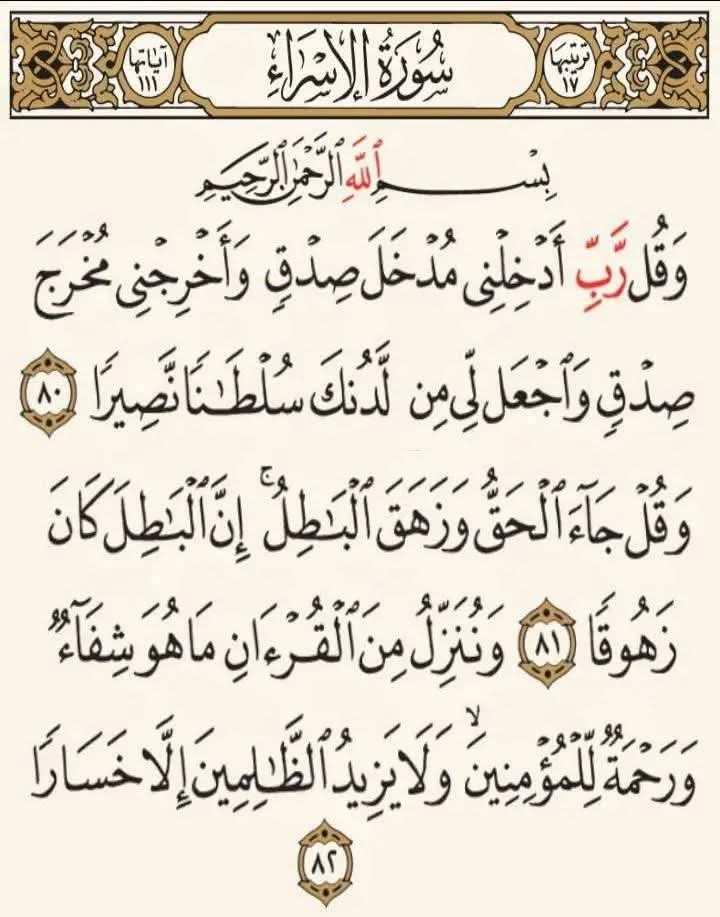 ترتيبها ١٧ سُورَةُ الإِسْرَاءِ آياتها ١١١
بِسْمِ ٱللَّهِ ٱلرَّحْمَٰنِ ٱلرَّحِيمِ
وَقُل رَّبِّ أَدْخِلْنِى مُدْخَلَ صِدْقٍ وَأَخْرِجْنِى مُخْرَجَ
صِدْقٍ وَٱجْعَل لِّى مِن لَّدُنكَ سُلْطَٰنًا نَّصِيرًا ٨٠
وَقُلْ جَآءَ ٱلْحَقُّ وَزَهَقَ ٱلْبَٰطِلُ ۚ إِنَّ ٱلْبَٰطِلَ كَانَ
زَهُوقًا ٨١ وَنُنَزِّلُ مِنَ ٱلْقُرْءَانِ مَا هُوَ شِفَآءٌ
وَرَحْمَةٌ لِّلْمُؤْمِنِينَ ۙ وَلَا يَزِيدُ ٱلظَّٰلِمِينَ إِلَّا خَسَارًا
٨٢